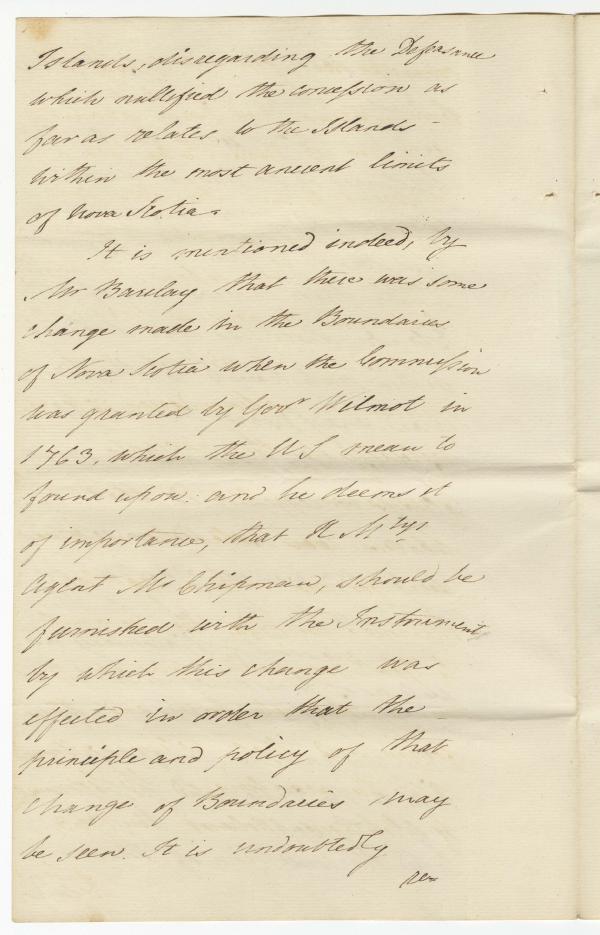 Islands, disregarding the Defeasance
which nullified the concession as
far as relates to the Islands -
within the most ancient limits
of Nova Scotia.
It is mentioned indeed, by
Mr Barclay that there was some
change made in the Boundaries
of Nova Scotia when the Commission
was granted by Govr Wilmot in
1763. which the US mean to
found upon. and he deems it
of importance, that H Mtys
Agent Mr Chipman, should be
furnished with the Instrument
by which this change was
effected in order that the
principle and policy of that
change of Boundaries may
be seen. It is undoubtedly
re=